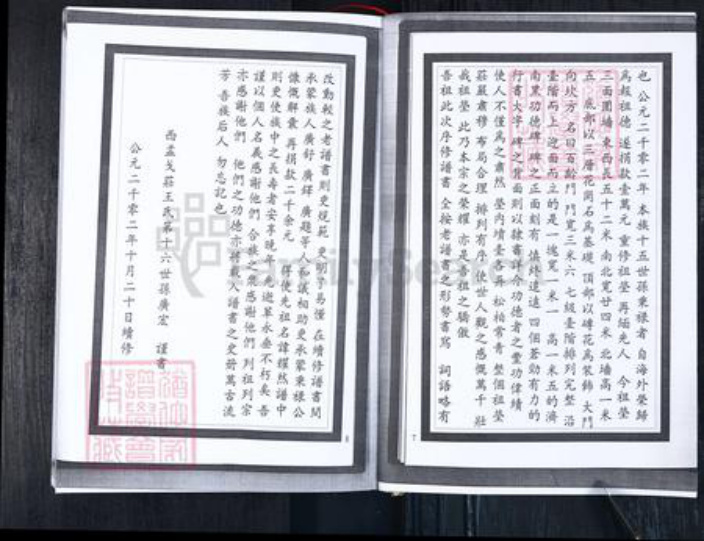 也 公元二千零二年 本族十五世孫秉祿者 自海外榮歸
為報祖德 遂捐款壹萬元 重修祖塋 再緬先人 今祖塋
三面圍墻 東西長五十二米 南北寬廿四米 北墻高一米
五 底部以三層花崗石為基礎 頂部以磚花為裝飾 大門
向坎方 名曰百齡門 門寬三米六 七級臺階排列完整 沿
臺階而上 迎面而立的是一塊寬一米一 高一米五的濟
南黑功德碑 碑之正面刻有 慎終追遠 四個蒼勁有力的
行書大字 碑之背面則以隸書詳介功德者之豐功偉績
使人不僅為之肅然 塋內墳臺 井 松柏常青 整個祖塋
莊嚴肅穆 布局合理 排列有序 使世人觀之感慨萬千 壯
我祖塋 此乃本宗之榮耀 亦是先祖之驕傲
吾祖此次序修譜書 全按老譜書之形勢書寫 詞語略有
7
改動 較之老譜書則更規範 文明 易懂 在續修譜書間
承蒙族人廣舒 廣鐸 廣題等人和議相助 更承蒙秉祿公
慷慨解囊 再捐款二千余元 得使先祖名諱耀然譜中
則更使族中之長壽者安享晚年 先逝單永垂不朽矣 吾
謹以個人名義感謝他們 合族之眾感謝他們 列祖列宗
亦感謝他們 他們之功德亦將載入譜書之史冊 萬古流
芳 吾族后人 勿忘記也
西孟戈莊王氏第十六世孫廣宏 謹書
公元二千零二年十月二十日續修
8
FamilySearch